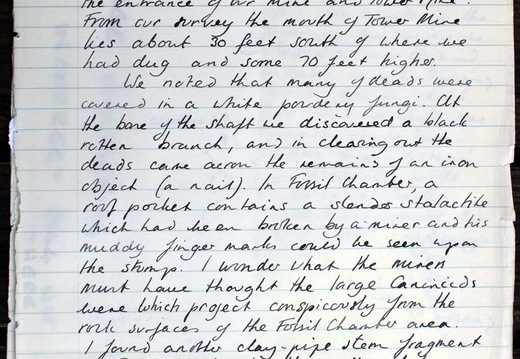 the entrance of our mine and Tower Mine.
From our survey the mouth of Tower Mine
lies about 30 feet south of where we
had dug and some 70 feet higher.
We noted that many of deads were
covered in a white powdery fungi. At
the base of the shaft we discovered a black
rotten branch, and in clearing out the
deads came across the remains of an iron
object (a nail). In Fossil Chamber, a
roof pocket contains a slender stalactite
which had been broken by a miner and his
muddy finger marks could be seen upon
the stump. I wonder what the miners
must have thought the large Caninids
were which project conspicuously from the
rock surfaces of the Fossil Chamber area.
I found another clay-pipe stem fragment